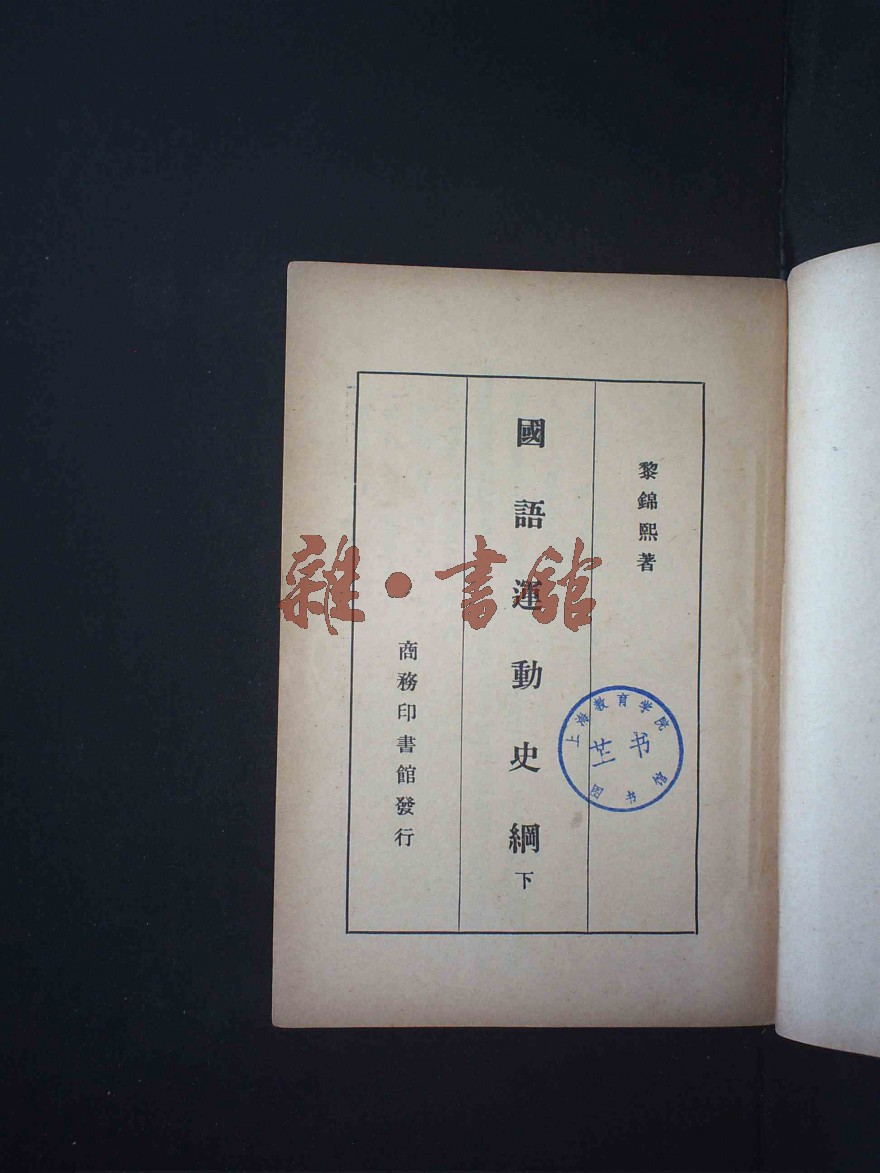 黎錦熙著
國語運動史綱下
商務印書館發行
雜·書館
上海教育学院
图书馆